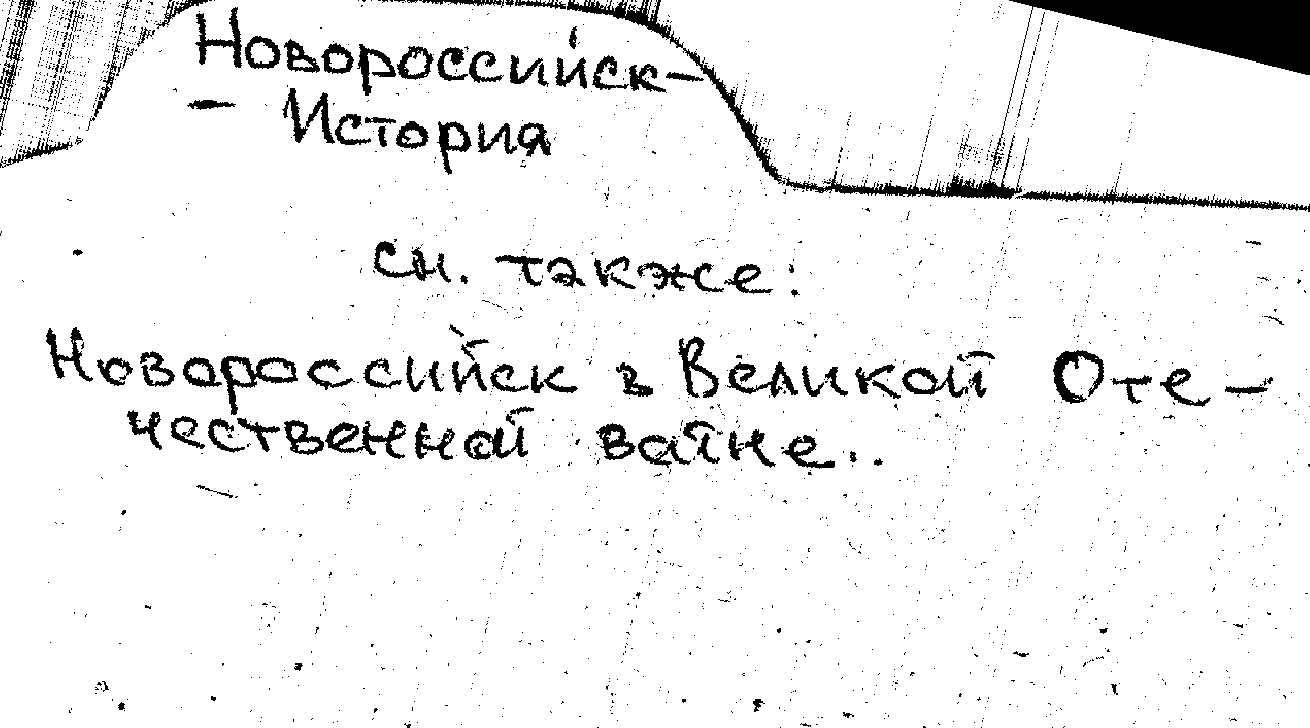 Новороссийск-
- История
см. также:
Новороссийск в Великой Оте-
чественной войне..